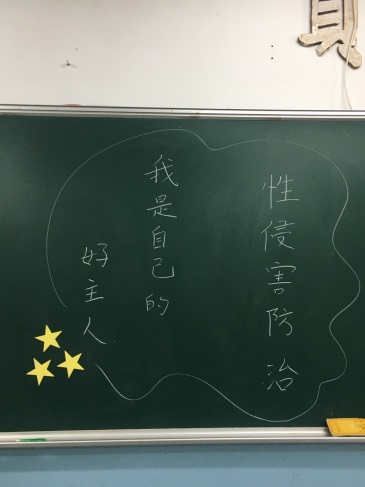 性侵害防治
我是自己的
好主人
真